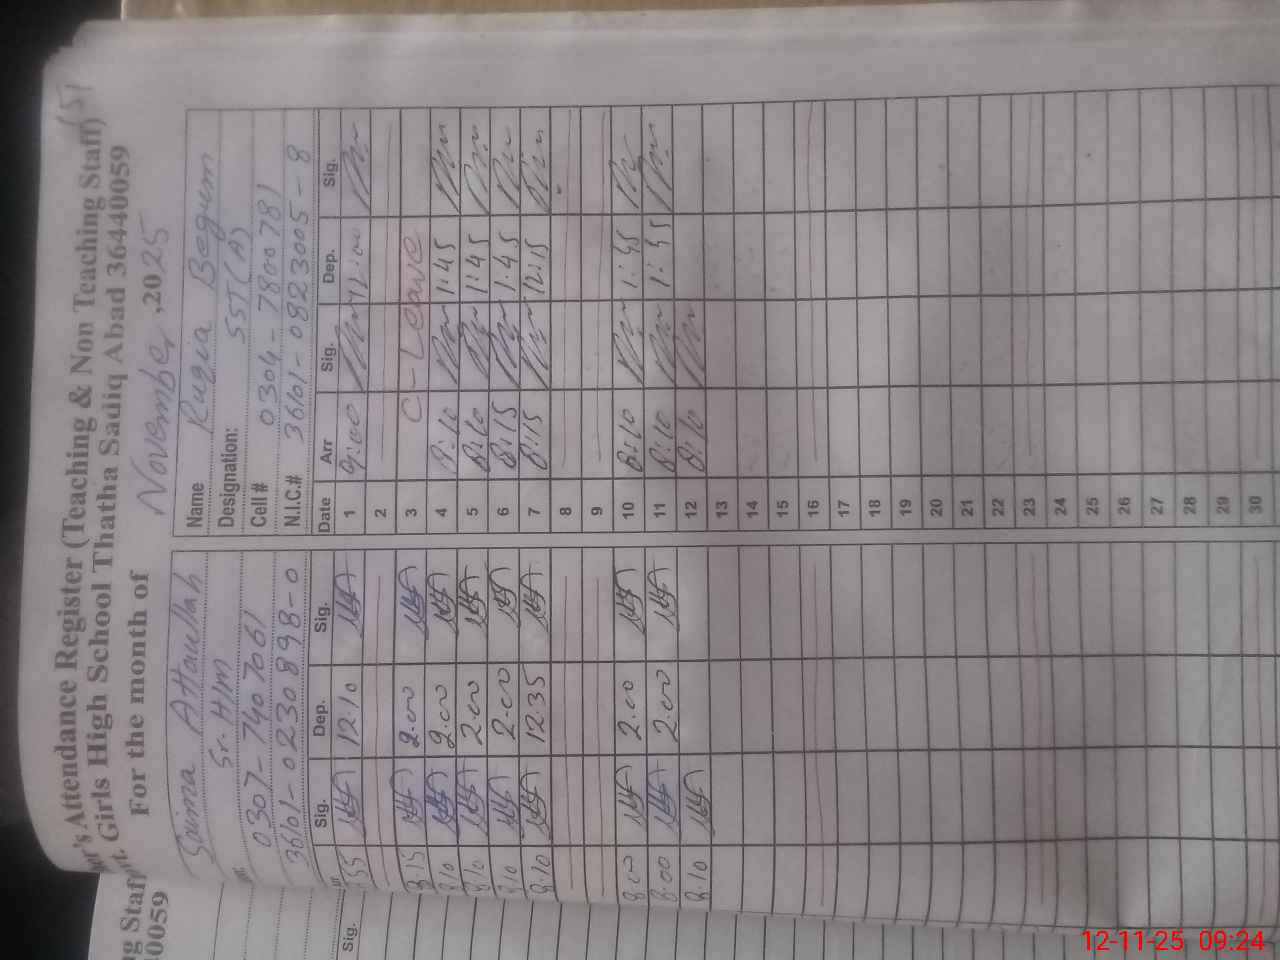 er's Attendance Register (Teaching & Non Teaching Staff) (5)
t. Girls High School Thatha Sadiq Abad 36440059
For the month of November ,2025
Saima Attaullah
Sr. H/m
0307-7407061
36101-0230898-0
Sig. Dep. Sig.
55 12.10
8.15 2.00
8.10 2.00
8.10 2.00
8.10 2.00
8.10 12.35
8.00 2.00
8.00 2.00
8.10
Name Ruqia Begum
Designation: SST(A)
Cell # 0304-7800781
N.I.C.# 36101-0823005-8
Date Arr Sig. Dep. Sig.
1 9:00 12:00
2
3 C-Leave
4 8:10 1:45
5 8:10 1:45
6 8:15 1:45
7 8:15 12:15
8
9
10 8:10 1:45
11 8:10 1:45
12 8:10
13
14
15
16
17
18
19
20
21
22
23
24
25
26
27
28
29
30
ng Staff
40059
Sig.
12-11-25 09:24